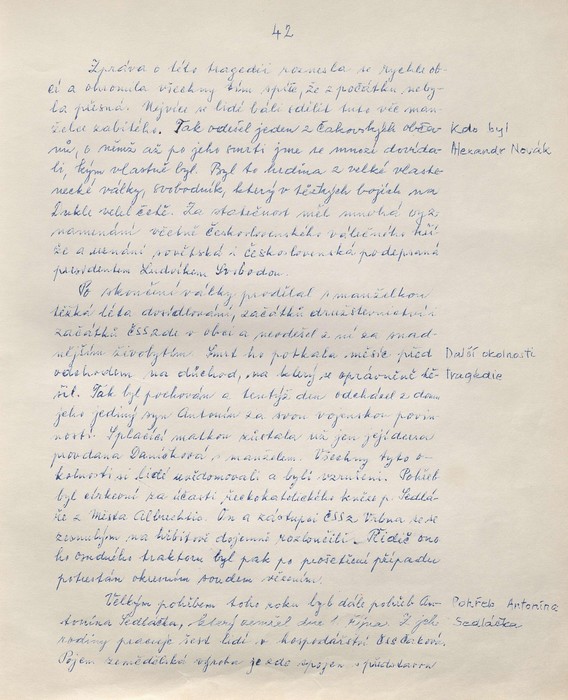 42
Zpráva o této tragedii roznesla se rychle ob-
cí a ohromila všechny tím spíše, že z počátku neby-
la přesná. Nejvíce se lidé báli sdělit tuto věc man-
želce zabitého. Tak odešel jeden z čakovských obča-
nů, o němž až po jeho smrti jsme se mnozí dovída-
li, kým vlastně byl. Byl to hrdina z velké vlaste-
necké války, svobodník, který v těžkých bojích na
Dukle velel četě. Za statečnost měl mnohá vyz-
namenání včetně Československého válečného kří-
že a uznání sovětská i československá podepsaná
presidentem Ludvíkem Svobodou.
Kdo byl
Alexandr Novák
Po skončení války prodělal s manželkou
těžká léta dosídlování, začátků družstevnictví i
začátků ČSSZ zde v obci a neodešel z ní za snad-
nějším živobytím. Smrt ho potkala měsíc před
odchodem na důchod, na který se oprávněně tě-
šil. Tak byl pochován a tentýž den odcházel z domu
jeho jediný syn Antonín za svou vojenskou povin-
ností. S plačící matkou zůstala už jen její dcera
provdaná Daníčková s manželem. Všechny tyto o-
kolnosti si lidé uvědomovali a byli vzrušeni. Pohřeb
byl církevní za účasti řeckokatolického kněze p. Sedlá-
ře z Města Albrechtic. On a zástupci ČSSZ Vrbna se se
zesnulým na hřbitově dojemně rozloučili. Řidič ono-
ho osudného traktoru byl pak po prošetření případu
potrestán okresním soudem vězením.
Další okolnosti
tragédie
Velkým pohřbem toho roku byl dále pohřeb An-
tonína Sedláčka, který zemřel dne 1. října. Z jeho
rodiny pracuje šest lidí v hospodářství
Pojem zemědělská výroba je zde spojen s představou
Pohřeb Antonína
Sedláčka